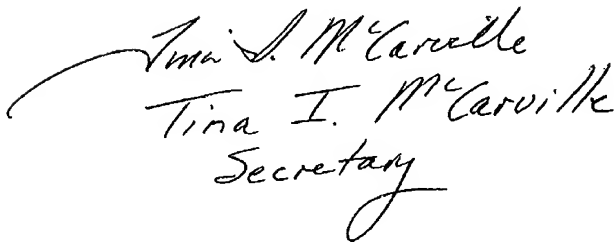 Tina I. McCarville
Tina I. McCarville
Secretary